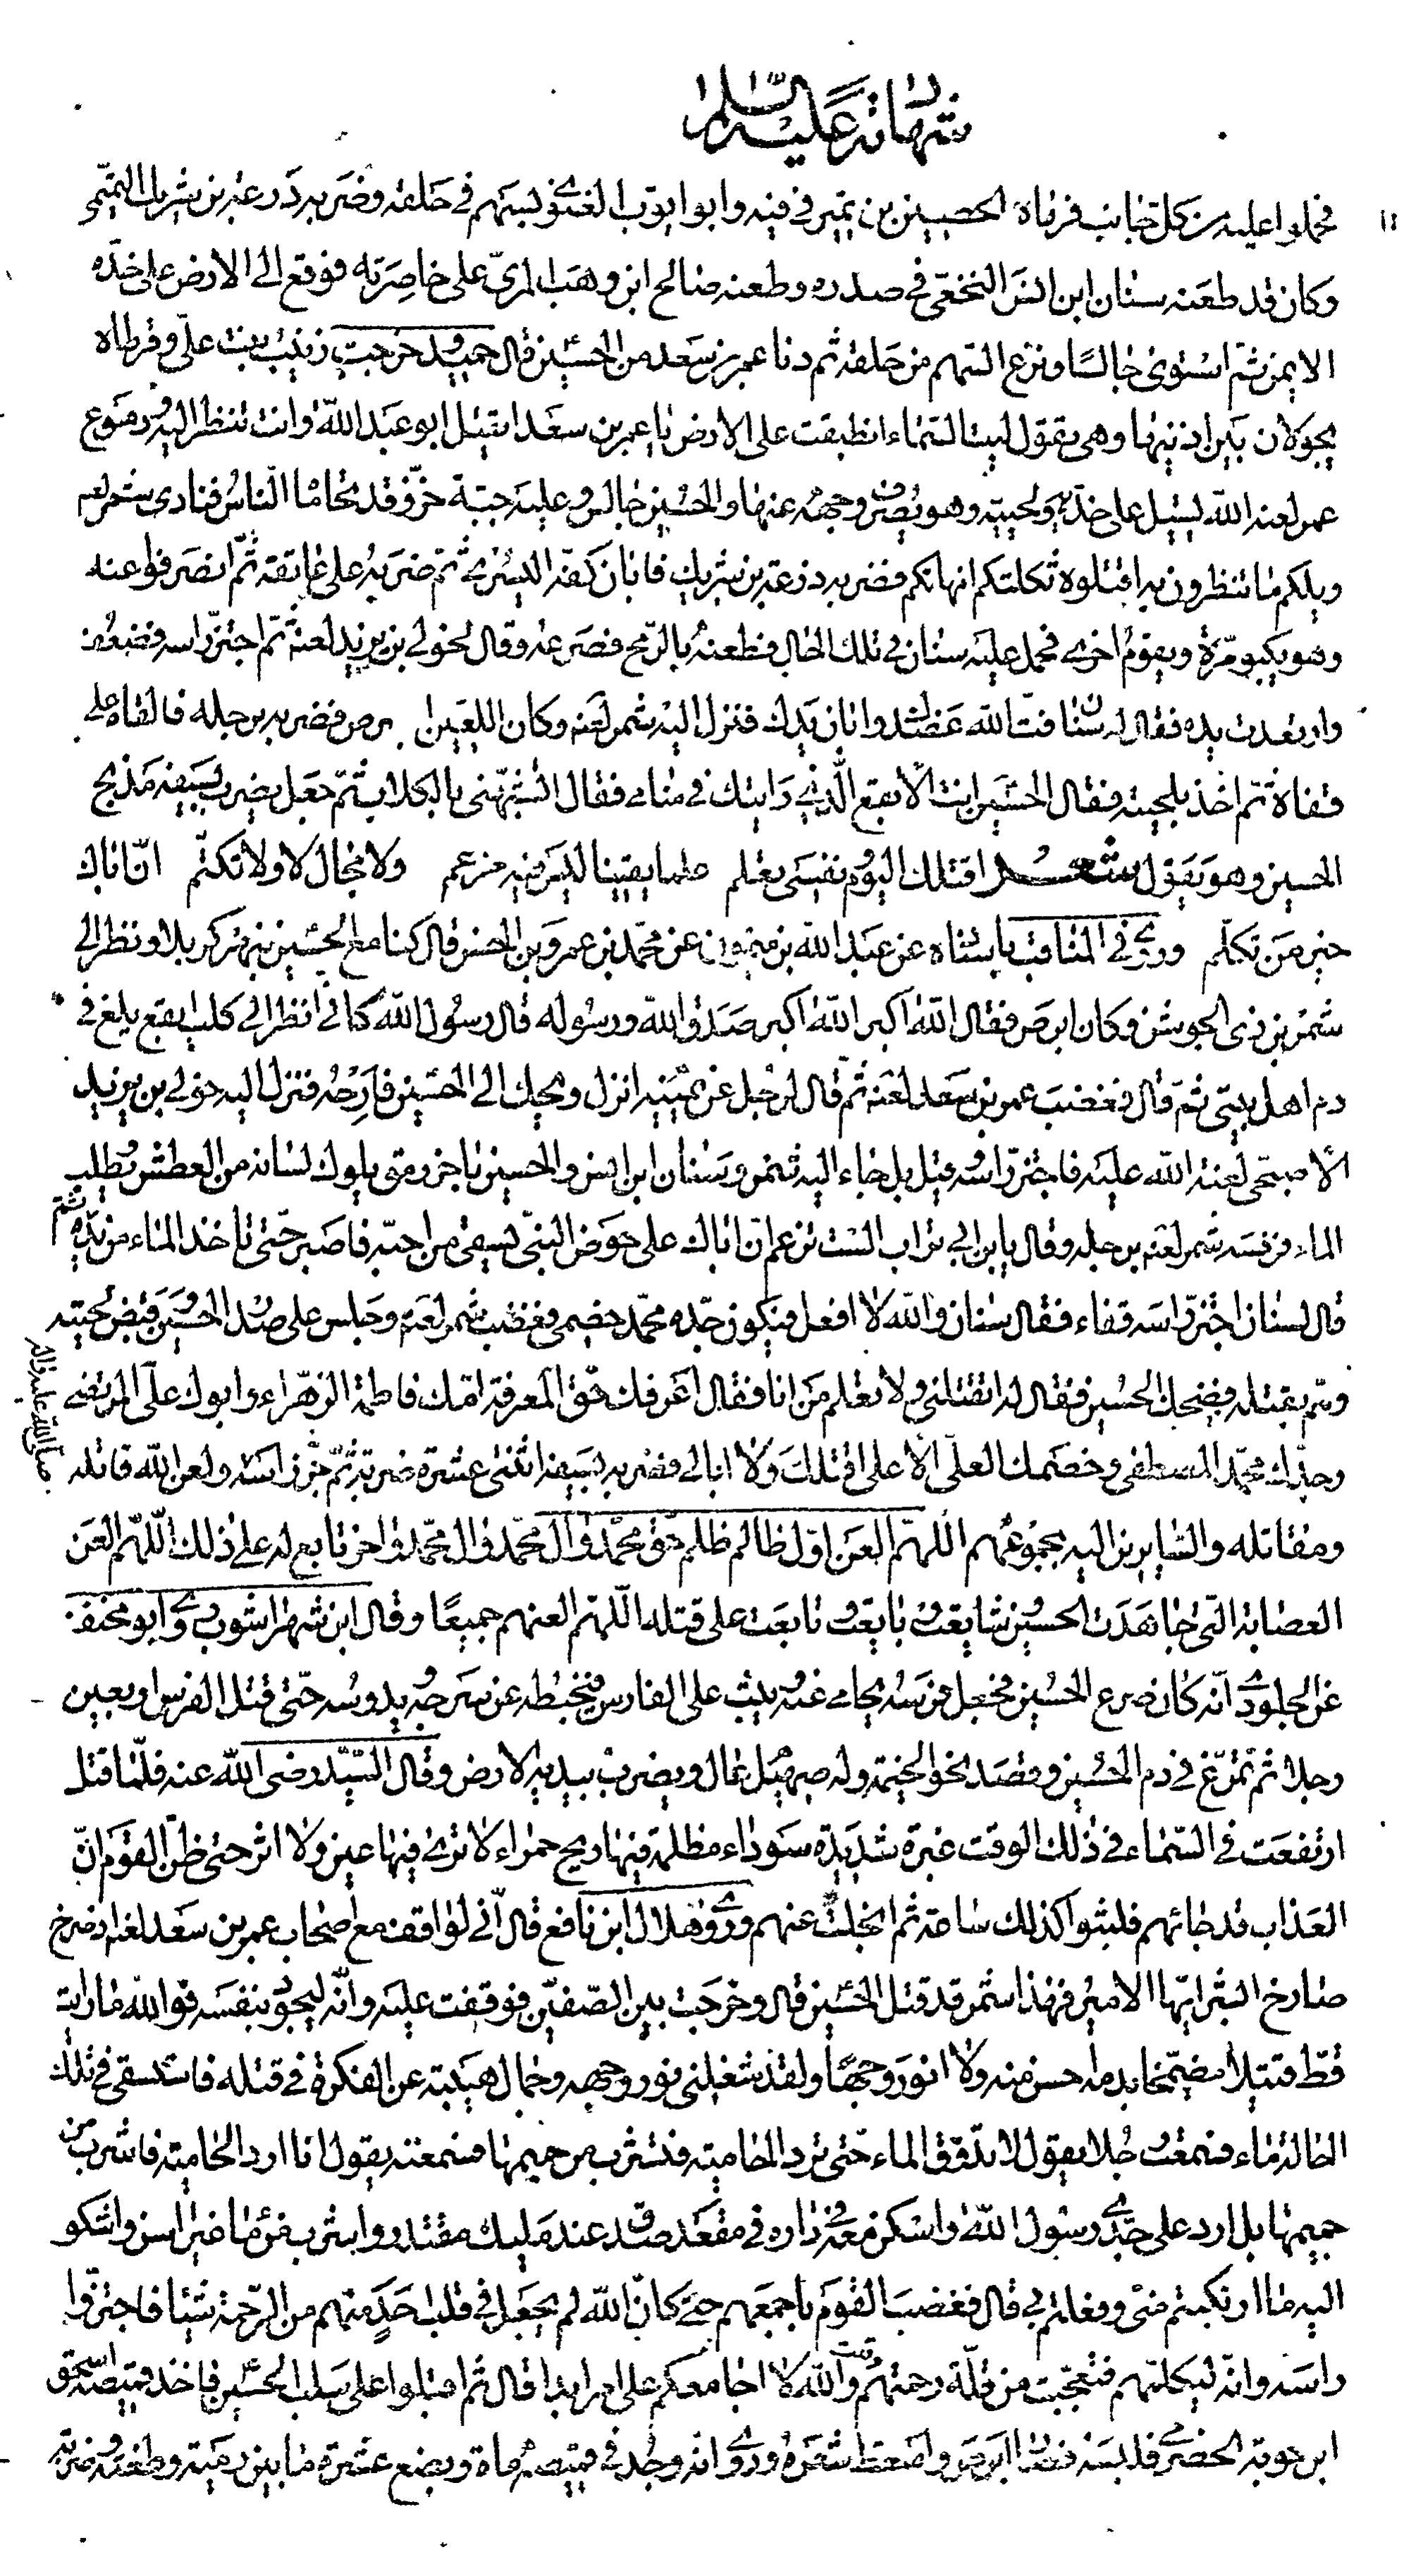 شهادته عليه السلام
فحملوا عليه من كل جانب فرماه الحصين بن نمير في فيه وابو ايوب الغنوي بسهم في حلقه وضربه ذرعة بن شريك التميمي
وكان قد طعنه سنان ابن انس النخعي في صدره وطعنه صالح ابن وهب المري على خاصرته فوقع الى الارض على خده
الايمن ثم استوى جالسا ونزع السهم من حلقه ثم دنا عمر بن سعد من الحسين قال حميد وخرجت زينب بنت علي وقرطاه
يجولان بين اذنيها وهي تقول ليت السماء انطبقت على الارض يا عمر بن سعد ايقتل ابو عبد الله وانت تنظر اليه ودموع
عمر لعنه الله تسيل على خديه ولحيته وهو يصرف وجهه عنها والحسين جالس وعليه جبة خز وقد تحاماه الناس فنادى شمر لعنه
ويلكم ما تنظرون به اقتلوه ثكلتكم امهاتكم فضربه ذرعة بن شريك فابان كفه اليسرى ثم ضربه على عاتقه ثم انصرفوا عنه
وهو يكبو مرة ويقوم اخرى فحمل عليه سنان في تلك الحال فطعنه بالرمح فصرعه وقال لخولي بن يزيد لعنه ثم اجتز راسه فضعف
وارتعدت يده فقال له سنان فت الله عضدك وابان يدك فنزل اليه شمر لعنه وكان اللعين ابرص فضربه برجله فالقاه على
قفاه ثم اخذ بلحيته فقال الحسين انت الابقع الذي رايتك في منامي فقال اتشبهني بالكلاب ثم جعل يضرب بسيفه مذبح
الحسين وهو يقول شعر اقتلك اليوم ونفسي تعلم علما يقينا ليس فيه مزعم ولا مجال لا ولا تكتم ان اباك
خير من تكلم وروي في المناقب باسناده عن عبد الله بن ميمون عن محمد بن عمرو بن الحسن قال كنا مع الحسين بنهر كربلا ونظر الى
شمر بن ذي الجوشن وكان ابرص فقال الله اكبر الله اكبر صدق الله ورسوله قال رسول الله كاني انظر الى كلب ابقع يلغ في
دم اهل بيتي ثم قال فغضب عمر بن سعد لعنه ثم قال لرجل عن يمينه انزل ويحك الى الحسين فارحه فنزل اليه خولي بن يزيد
الاصبحي لعنة الله عليه فاجتز راسه وقيل بل جاء اليه شمر وسنان ابن انس والحسين باخر رمق يلوك لسانه من العطش ويطلب
الماء فرفسه شمر لعنه برجله وقال يا بن ابي تراب الست تزعم ان اباك على حوض النبي يسقي من احبه فاصبر حتى تاخذ الماء من يده ثم
قال لسنان اجتز راسه قفاء فقال سنان والله لا افعل فيكون جده محمد خصمي فغضب شمر لعنه وجلس على صدر الحسين وقبض لحيته
وهم بقتله فضحك الحسين فقال له اتقتلني ولا تعلم من انا فقال اعرفك حق المعرفة امك فاطمة الزهراء وابوك علي المرتضى
وجدك محمد المصطفى وخصمك العلي الاعلى اقتلك ولا ابالي فضربه بسيفه اثنتي عشرة ضربة ثم جز راسه ولعن الله قاتله
صلى الله عليه واله
ومقاتله والسايرين اليه بجموعهم اللهم العن اول ظالم ظلم حق محمد وال محمد واخر تابع له على ذلك اللهم العن
العصابة التي جاهدت الحسين وشايعت وبايعت وتابعت على قتله اللهم العنهم جميعا وقال ابن شهراشوب وروى ابو مخنف
عن الجلودي انه كان صرع الحسين فجعل فرسه يحامي عنه ويثب على الفارس فيخبطه عن سرجه ويدوسه حتى قتل الفرس اربعين
رجلا ثم تمرغ في دم الحسين وقصد نحو الخيمة وله صهيل عال ويضرب بيديه الارض وقال السيد رضي الله عنه فلما قتل
ارتفعت في السماء في ذلك الوقت غبرة شديدة سوداء مظلمة فيها ريح حمراء لا ترى فيها عين ولا اثر حتى ظن القوم ان
العذاب قد جائهم فلبثوا كذلك ساعة ثم انجلت عنهم وروى هلال ابن نافع قال اني لواقف مع اصحاب عمر بن سعد لعنه اذ صرخ
صارخ ابشر ايها الامير فهذا شمر قد قتل الحسين قال وخرجت بين الصفين فوقفت عليه وانه ليجود بنفسه فوالله ما رايت
قط قتيلا مضمخا بدمه احسن منه ولا انور وجها ولقد شغلني نور وجهه وجمال هيبته عن الفكرة في قتله فاستسقى في تلك
الحالة ماء فسمعت رجلا يقول لا تذوق الماء حتى ترد الحامية فتشرب من حميمها فسمعته يقول انا ارد الحامية فاشرب من
حميمها بل ارد على جدي رسول الله واسكن معه في داره في مقعد صدق عند مليك مقتدر واشرب من ماء غير اسن واشكو
اليه ما ارتكبتم مني وفعلتم بي قال فغضب القوم باجمعهم حتى كان الله لم يجعل في قلب احد منهم من الرحمة شيئا فاجتزوا
راسه وانه ليكلمهم فتعجبت من قلة رحمتهم وقلت والله لا اجامعكم على امر ابدا قال ثم اقبلوا على سلب الحسين فاخذ قميصه اسحق
ابن حوية الحضرمي فلبسه فصار ابرص وامتعط شعره وروي انه وجد في قميصه ماة وبضع عشرة ما بين رمية وطعنة وضربة